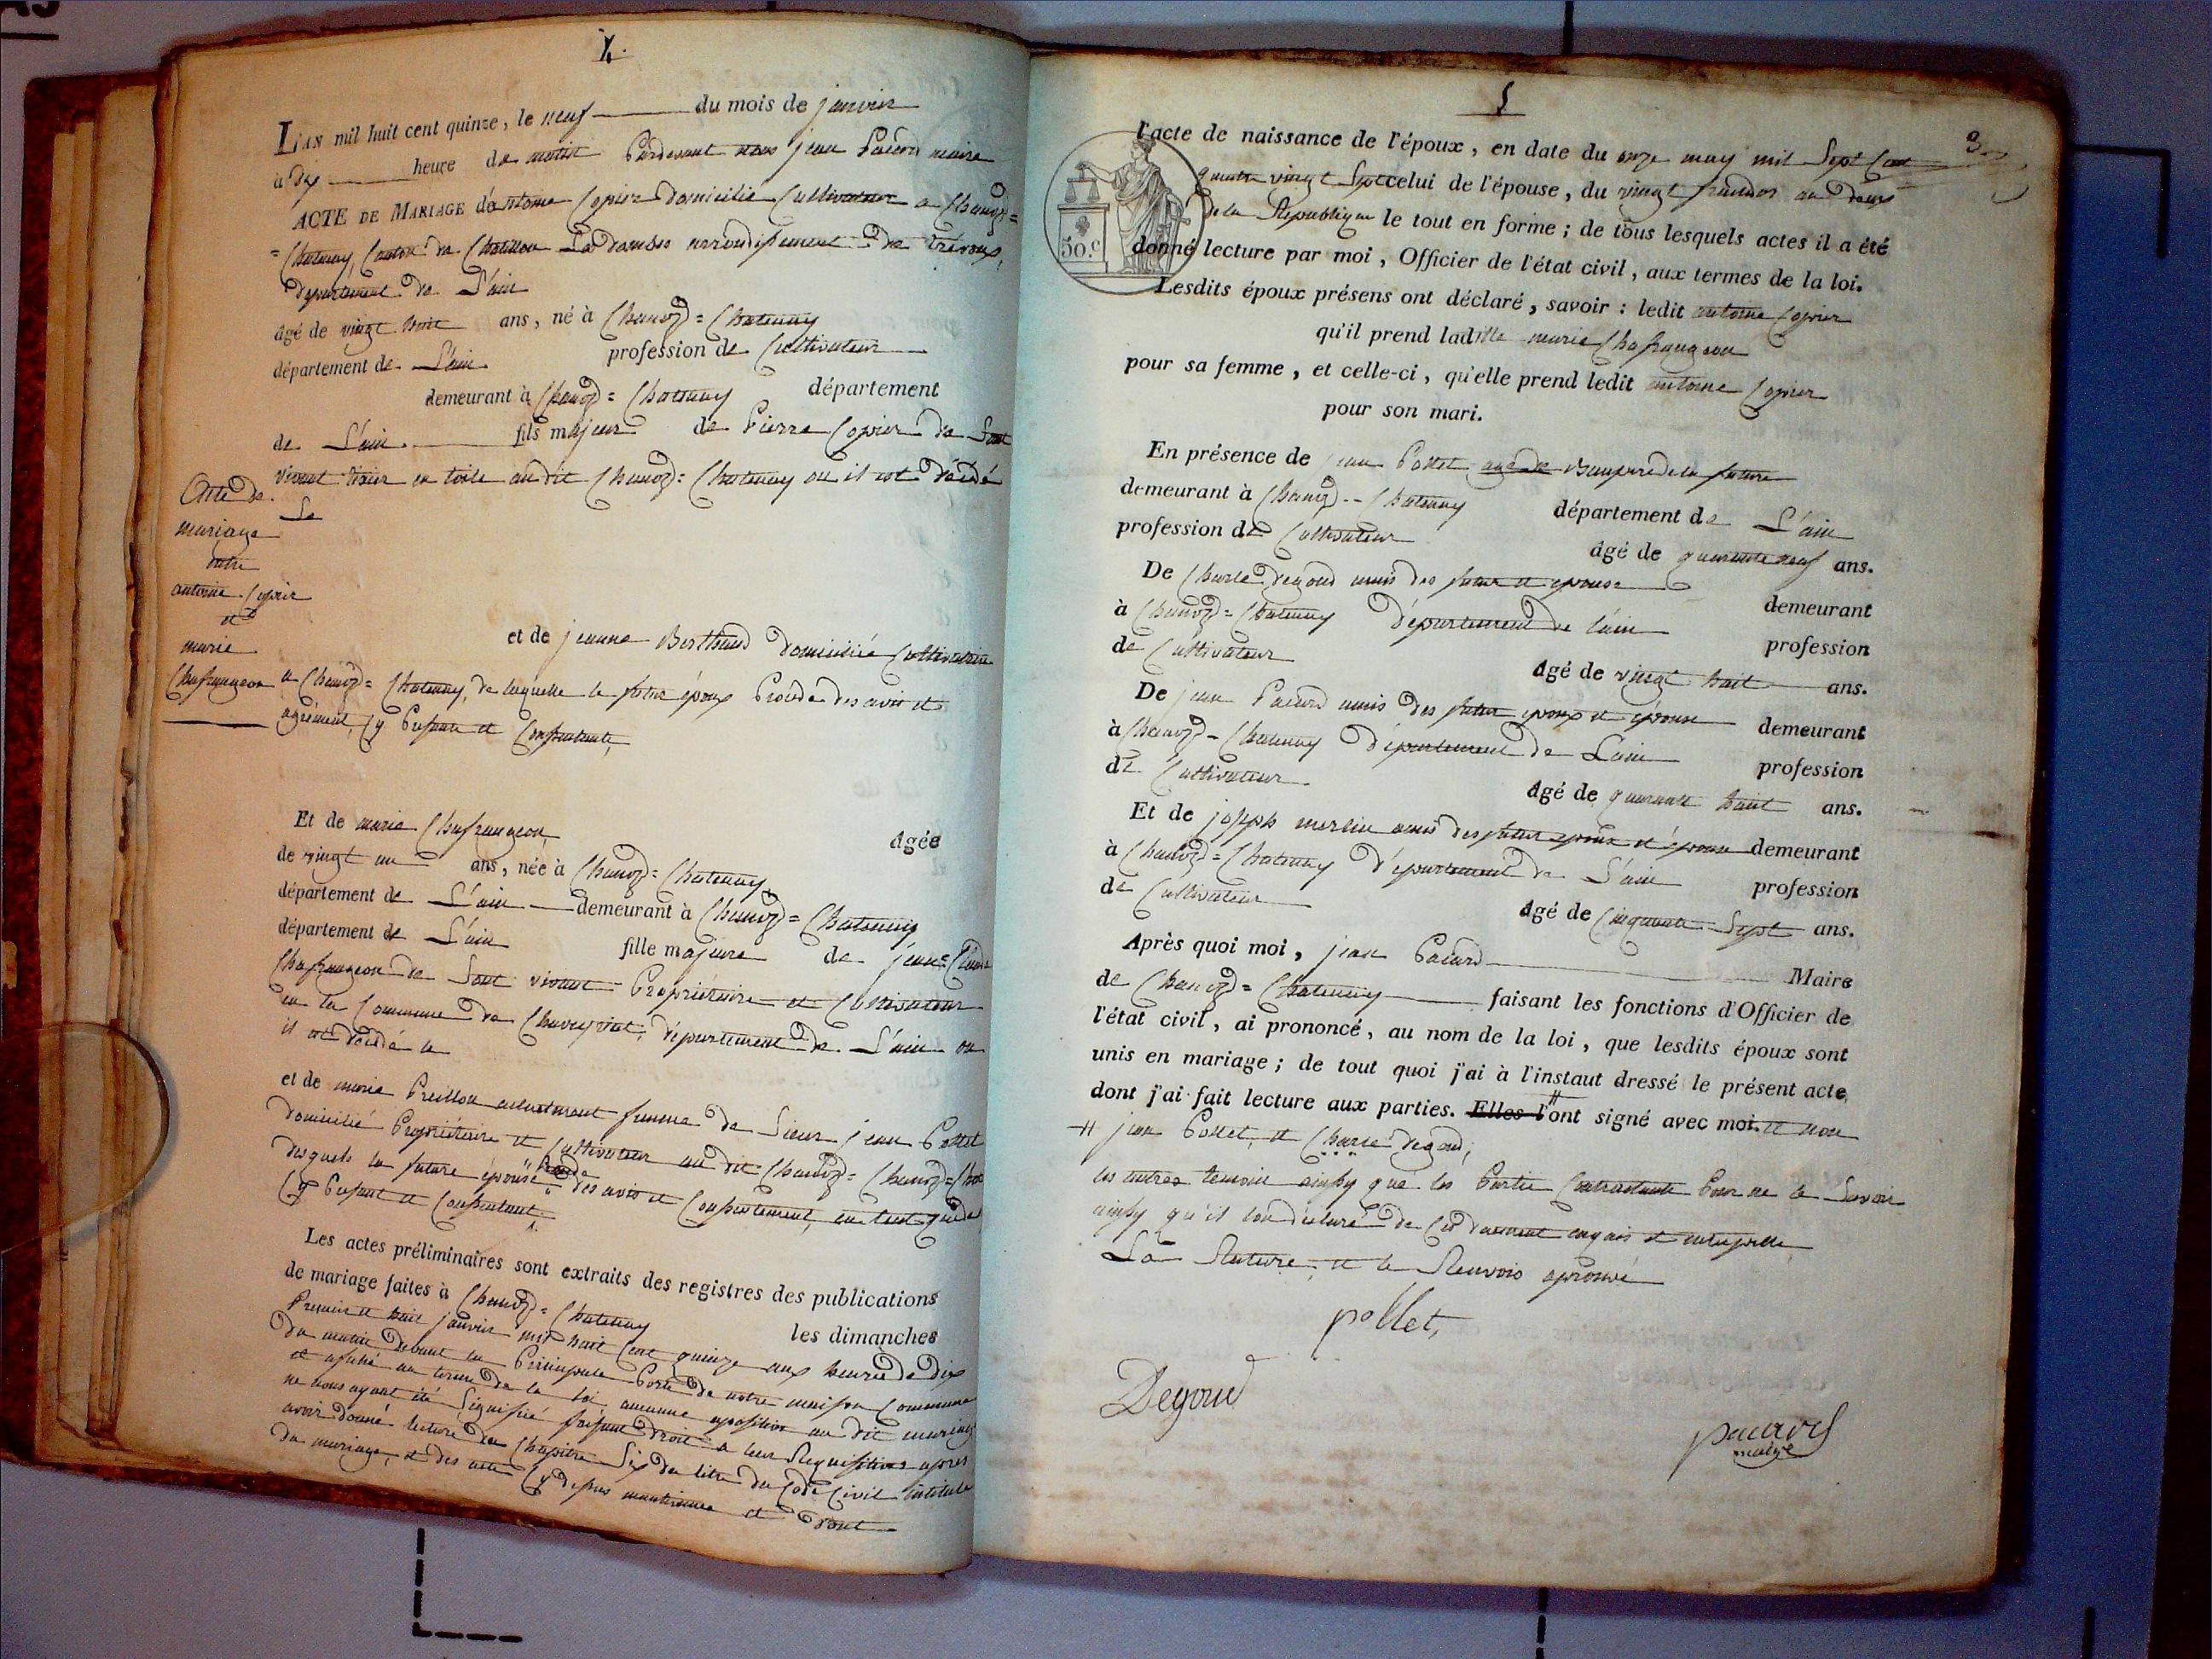 4.
L'AN mil huit cent quinze, le neuf du mois de janvier
à dix heure de matin Pardevant nous jean Pacard maire
ACTE DE MARIAGE d'antoine Copier domicilié Cultivateur a Chanoz=
=Chatenay, Canton de Chatillon Ladombes arrondissement de trévoux,
département de L'ain
âgé de vingt huit ans, né à Chanoz=Chatenay
département de L'ain profession de Cultivateur
demeurant à Chanoz=Chatenay département
de L'ain fils majeur de Pierre Copier de Sont
vivant tixier en toile au dit Chanoz=Chatenay ou il est décédé
Le
Acte de
mariage
entre
antoine Copier
et
marie
Chafrangeon
et de jeanne Berthaud domiciliée Cultivatrice
a Chanoz=Chatenay, de laquelle le futur époux Procéde des avis et
agrément, Cy Présente et Consentante,
Et de marie Chafrangeon agée
de vingt un ans, née à Chanoz=Chatenay
département de L'ain demeurant à Chanoz=Chatenay
département de L'ain fille majeure de jean=Claude
Chafrangeon de Sont vivant Propriétaire et Cultivateur
en la Commune de Chaveyriat, département de L'ain ou
il est décédé le
et de marie Preillon actuelment femme de Sieur jean Pollet
domicilié Propriétaire et Cultivateur au dit Chanoz=Chanoz=Chat
desquels la future épouse Procéde des avis et Consentement, en tent que de
Cy Présent et Consentant
Les actes préliminaires sont extraits des registres des publications
de mariage faites à Chanoz=Chatenay les dimanches
Premier et huit janvier mil huit Cent quinze aux heures de dix
du matin devant la Principale Porte de notre maison Commune
et afiché au terme de la loi aucunne oposition au dit mariage
ne nous ayant été Signifié faisant droit a leur Requisitions apres
avoir donné lecture du Chapitre Six du titre du Code Civil intitulé
du mariage, et des actes Cy dessus mentionnés et dont
5
3
50.C
l'acte de naissance de l'époux, en date du onze may mil Sept Cent
quatre vingt Sept celui de l'épouse, du vingt frimdor an deux
de la République le tout en forme; de tous lesquels actes il a été
donné lecture par moi, Officier de l'état civil, aux termes de la loi.
Lesdits époux présens ont déclaré, savoir: ledit antoine Copier
qu'il prend ladite marie Chafrangeon
pour sa femme, et celle-ci, qu'elle prend ledit antoine Copier
pour son mari.
En présence de jean Pollet Beaupere de la future
demeurant à Chanoz=Chatenay département de L'ain
profession de Cultivateur âgé de quarante neuf ans.
De Charle degoud amis des futur et épouse demeurant
à Chanoz=Chatenay département de l'ain profession
de Cultivateur âgé de vingt huit ans.
De jean Pacard amis des futur epoux et épouse demeurant
à Chanoz=Chatenay département de L'ain profession
de Cultivateur âgé de quarante huit ans.
Et de joseph merlin amis des futur epoux et épouse demeurant
à Chanoz=Chatenay département de L'ain profession
de Cultivateur âgé de Cinquante Sept ans.
Après quoi moi, jean Pacard Maire
de Chanoz=Chatenay faisant les fonctions d'Officier de
l'état civil, ai prononcé, au nom de la loi, que lesdits époux sont
unis en mariage; de tout quoi j'ai à l'instaut dressé le présent acte,
dont j'ai fait lecture aux parties. Elles l'ont signé avec moi. et non
# jean Pollet, et Charle degoud,
les autres temoin ainsy que les Partie Contractante Pour ne le Savoir
ainsy qu'il lon déclaré de Ce duement enquis et interpellé
La Rature, et le Renvois aprouvé
pollet,
Degoud
pacard
maire